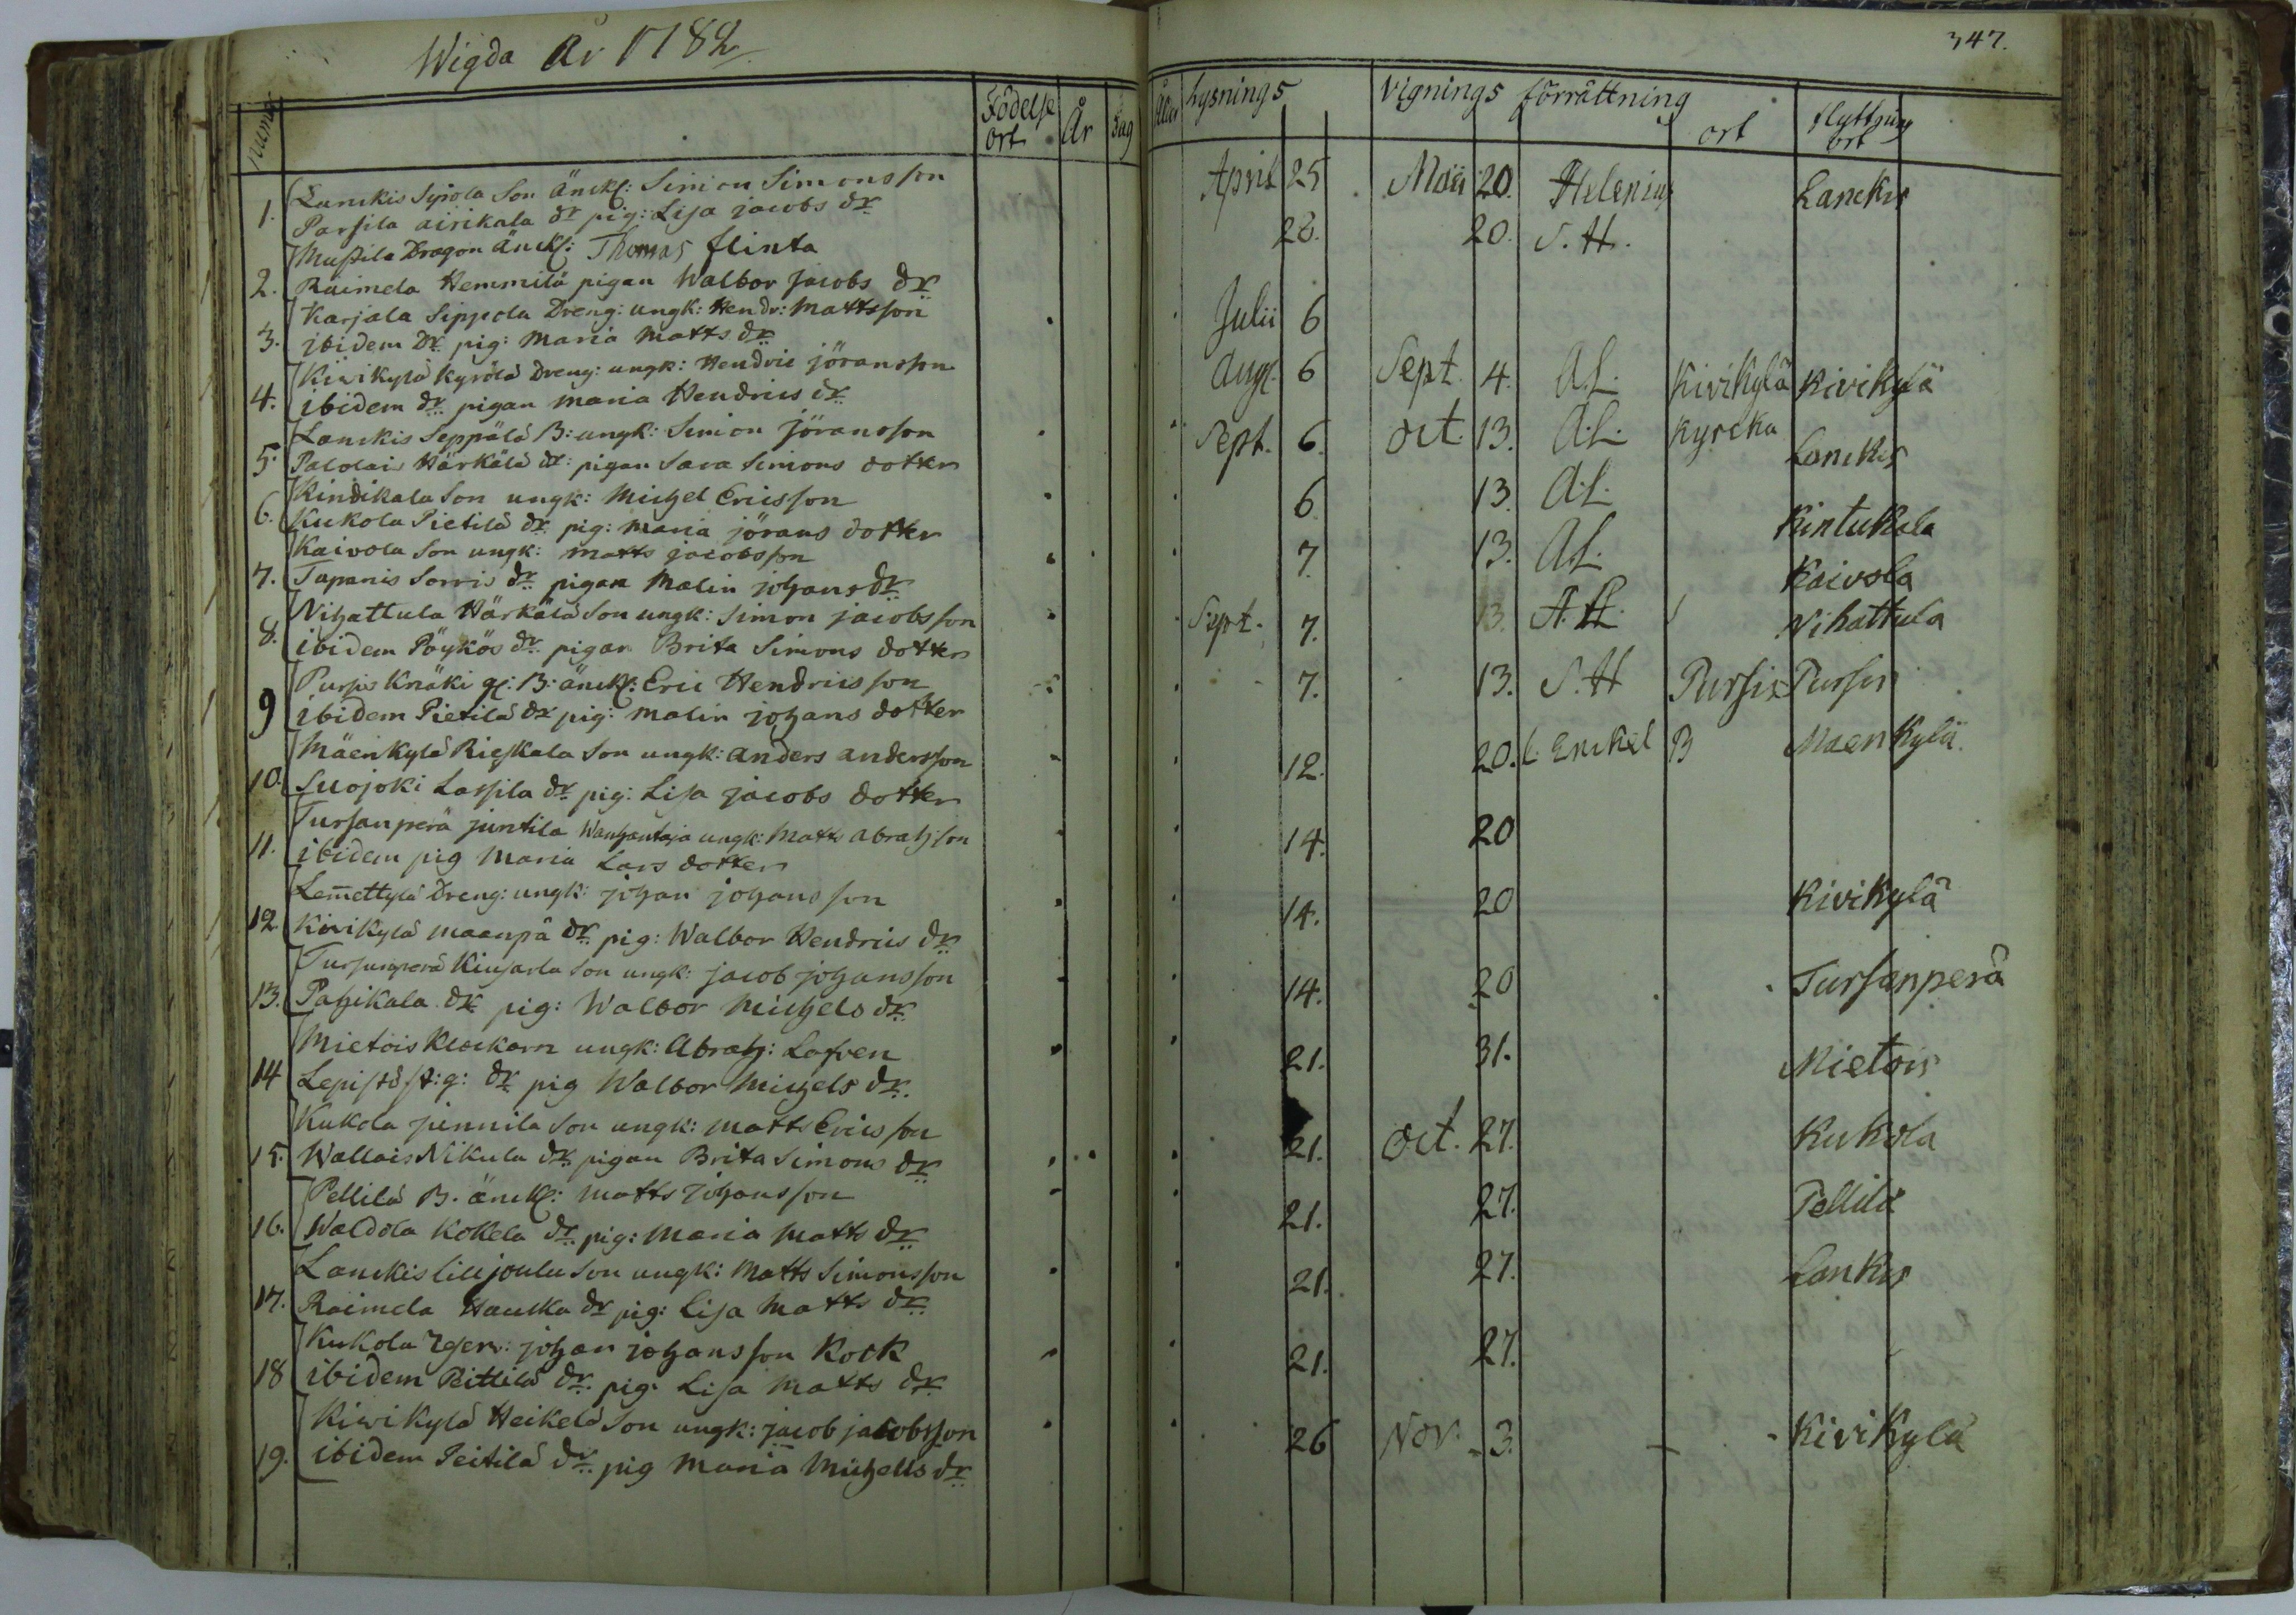 Wigda År 1782
Födelse ort År Dag
1. Lanckis Sipola Son änckl: Simon Simonsson
Parsila airikala dr pig: Lisa jacobs dr
Mussila Dragon änckl: Thomas flinta
2. Raimela Hemmilä pigan Walbor Jacobs dr
Karjala Sippola Dreng: ungk: Hendr: Mattsson
3. ibidem Dr pig: Maria Matts dr
Kivikylä Kyrölä Dreng: ungk: Hendric jöransson
4. ibidem dr pigan maria Hendrics dr
Lanckis Seppälä B: ungk: Simon jöransson
5. Palolais Härkälä dr: pigan Sara Simons dotter
Kindikala Son ungk: Michel Ericsson
6. Kukola Pietilä dr pig: maria jörans dotter
Kaivola Son ungk: matts jacobsson
7. Tapanis Sorris dr pigan Malin johans dr
Nihattula Härkälä Son ungk: Simon jacobsson
8. ibidem Pöykös dr pigan Brita Simons dotter
Pursis Knäki gl: B: änckl: Eric Hendricsson
9 ibidem Pietilä dr pig: malin johans dotter
Mäenkylä Rieskala Son ungk: anders andersson
10. Suojoki Lassila dr pig: Lisa jacobs dotter
Tursanperä juntila Wanhantaja ungk: Matts abrahsson
11. ibidem pig Maria Lars dotter
Lemettylä Dreng: ungk: johan johansson
12. Kivikylä maanpä dr pig: Walbor Hendrics dr
Tursunperä Kiusarla Son ungk: jacob johansson
13. Pahikala dr pig: Walbor Michels dr
Mietois Klockarn ungk: Abrah: Lofven
14 Lepistö st:g: dr pig Walbor Michels dr.
Kukola junnila Son ungk: matts Ericsson
15. Wallais Nikula dr pigan Brita Simons dr
Pellilä B. änckl: matts johansson
16. Waldola Kokela dr pig: Maria Matts dr
Lanckis lill joulu Son ungk: Matts Simonsson
17. Raimela Hauska dr pig: Lisa Matts dr
Kukola johan johansson Kock
18 ibidem Peittilä dr pig: Lisa Matts dr
Kivikylä Heikelä Son ungk: jacob jacobsson
19. ibidem Peitilä dr pig maria Michells dr
347.
Lysnings Vignings förrättning ort flyttnings ort
April 25 Maii 20. Helenius Lanckis
28. 20. S. H.
Julii 6
Aug. 6 Sept. 4. A.L. Kivikylä Kivikylä
Sept. 6. Oct. 13. A.L. Kyrcka Lanckis
6. 13. A.L. Kintukala
7. 13. A.L. Kaivola
Sept. 7. 13. A.H. Nihattula
7. 13. S.H Pursis Pursis
12. 20. C. Enckel B Maenkylä.
14. 20
14. 20 Kivikylä
14. 20 Tursanperä
21. 31. Mietois
21. Oct. 27. Kukola
21. 27. Pellilä
21. 27. Lankis
21. 27.
26 Nov. 3. Kivikylä